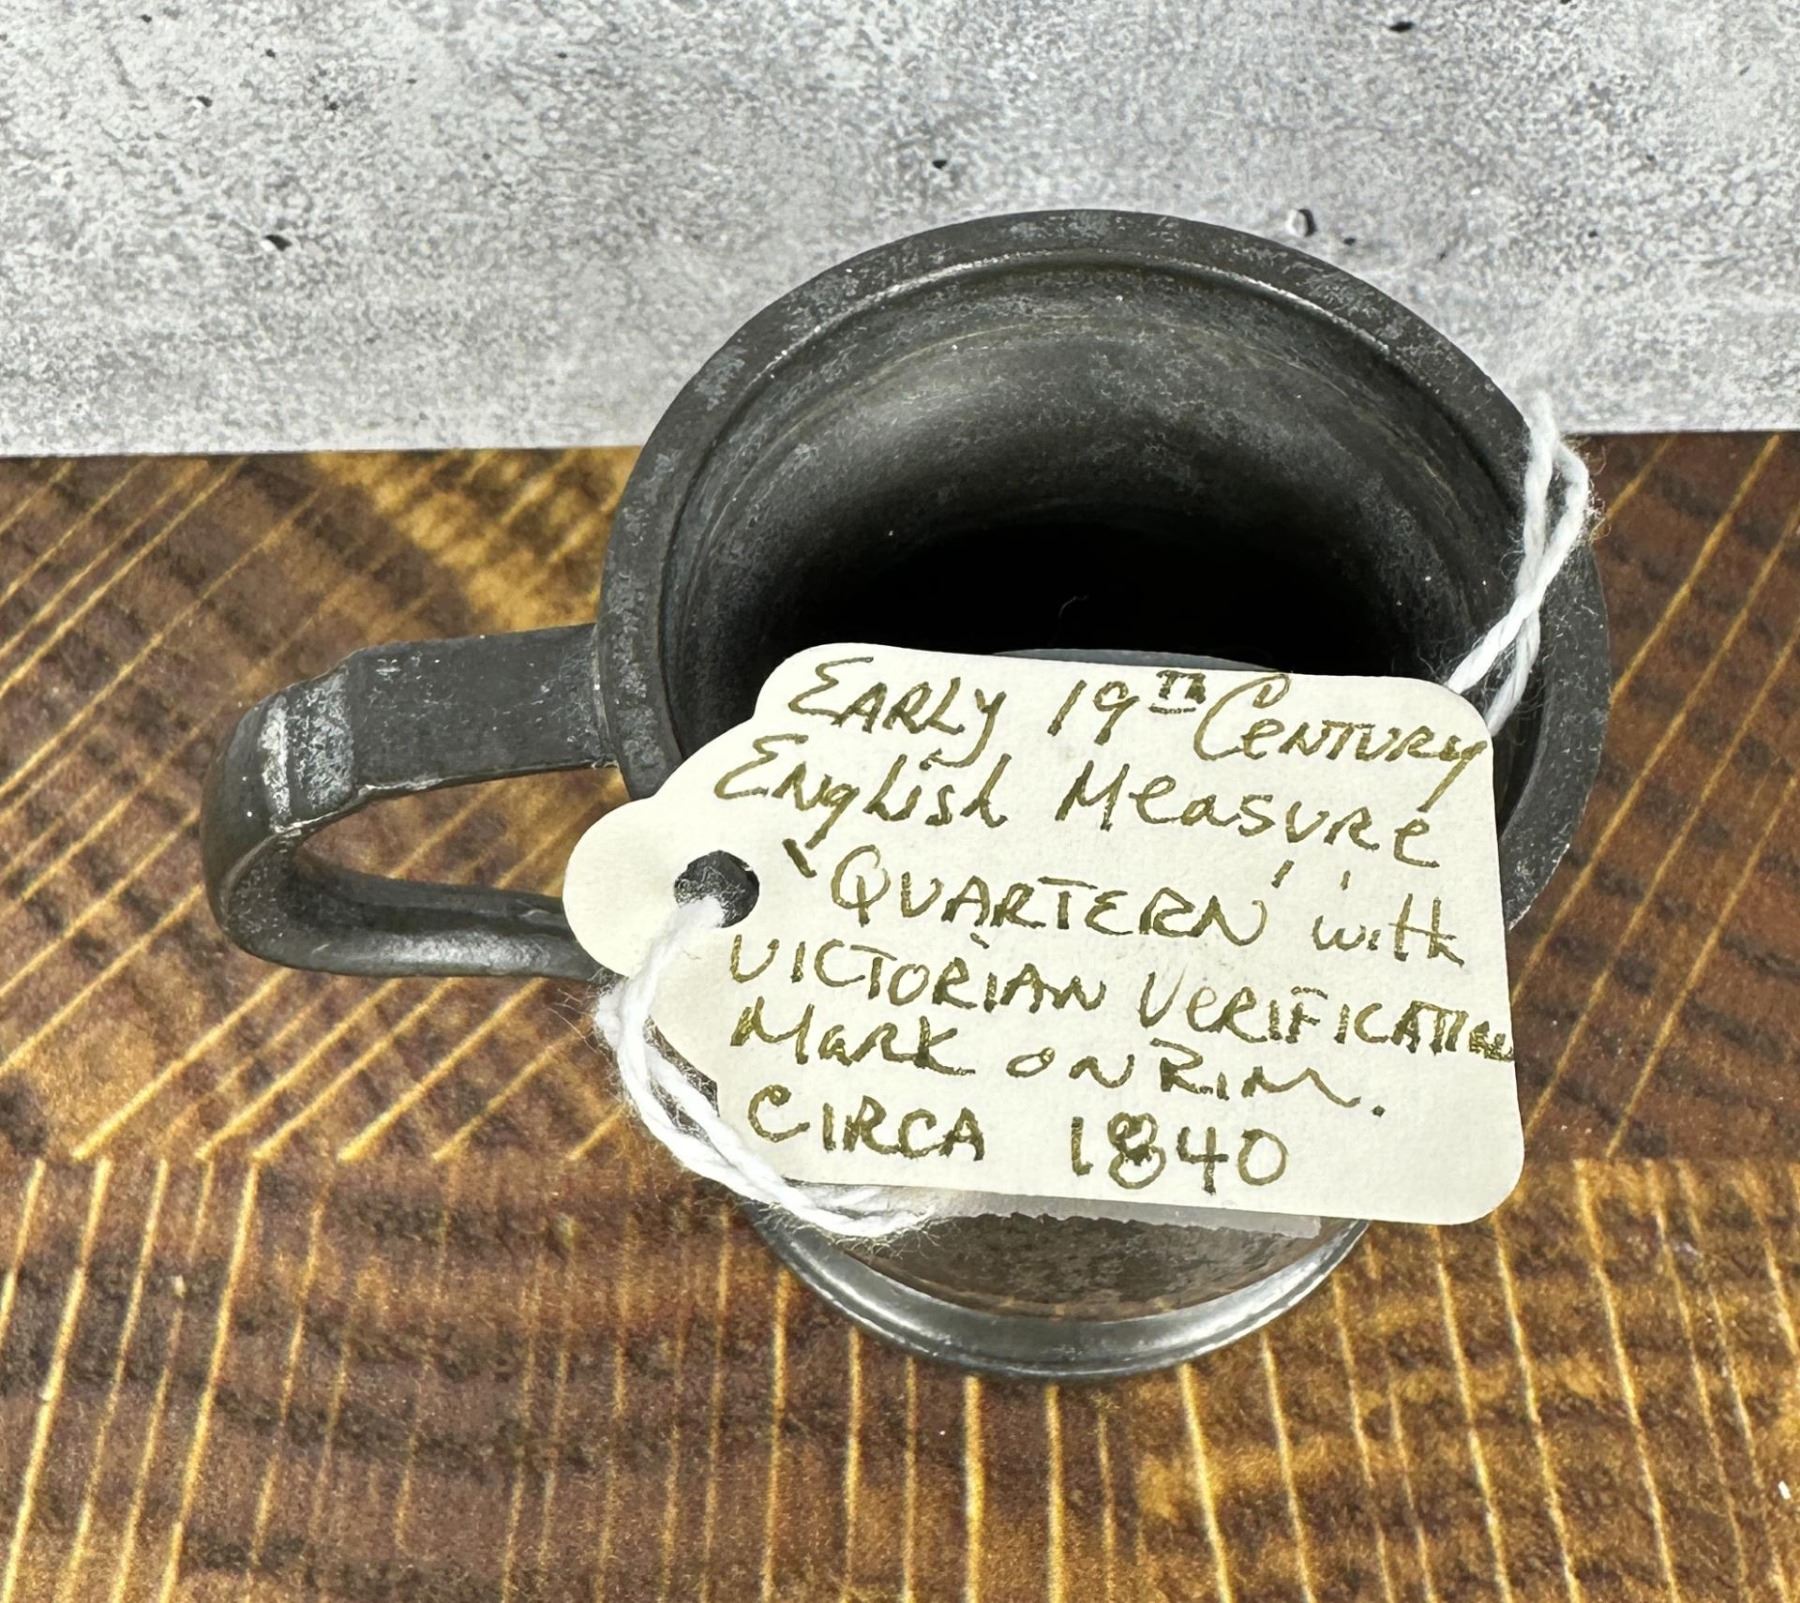 EARLY 19TH CENTURY
ENglish MeasuRe
'QUARTERN' with
VICTORIAN VeRIFICATION
MaRK ON RIM.
CIRCA 1840